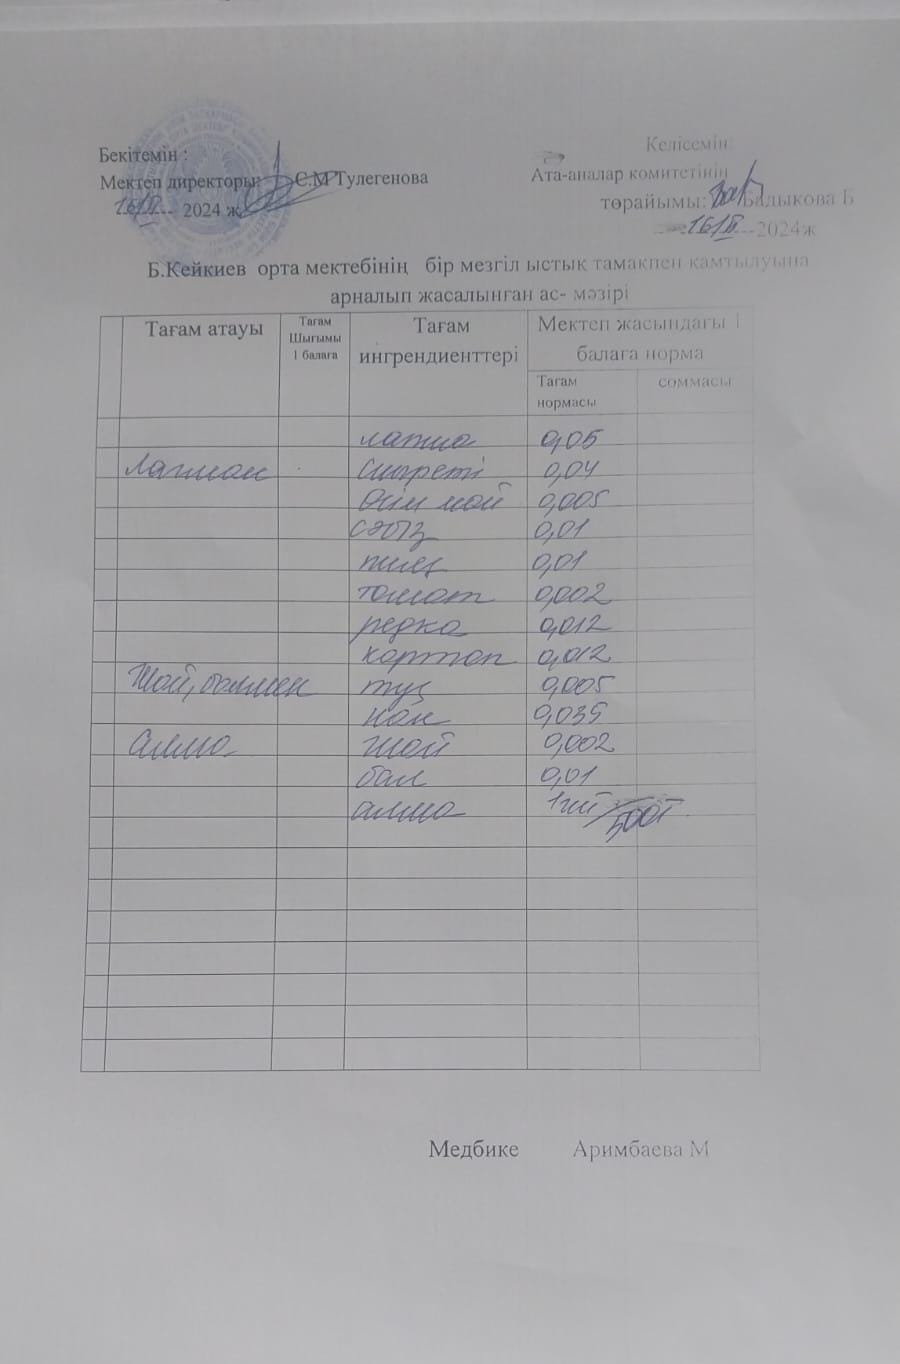 Бекітемін :
Келісемін:
Мектеп директоры: С.М Тулегенова
Ата-аналар комитетінің
төрайымы: Бадыкова Б
16/ІІ 2024 ж
16/ІІ 2024ж
Б.Кейкиев орта мектебінің бір мезгіл ыстык тамакпен камтылуына
арналып жасалынган ас- мәзірі
Тағам атауы
Тағам Шығымы 1 балаға
Тағам ингрендиенттері
Мектеп жасындағы 1 балаға норма
Тағам нормасы
соммасы
лапша 0,05
Лагман Сиыреті 0,04
Өсім май 0,005
сәбіз 0,01
пияз 0,01
томат 0,002
редка 0,012
картоп 0,012
Шай, балмен туз 0,005
нан 0,035
алма шай 0,002
бал 0,01
алма 1шт
Медбике Аримбаева М